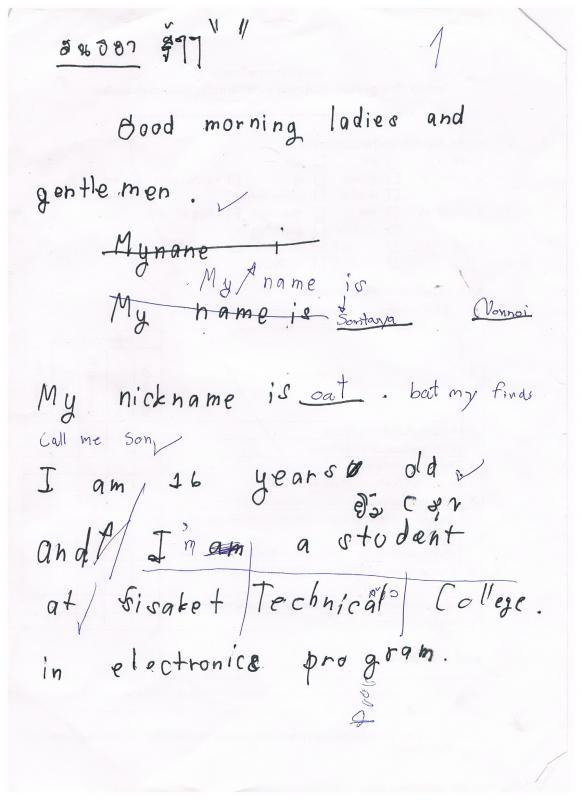 สนธยา
1
Good morning ladies and
gentlemen.
My name i
My name is
My name is Sontaya Nonnoi
My nickname is oat. bat my finds
call me son
I am 16 years old
and I'm am a student
at Sisaket Technical College.
in electronics program.